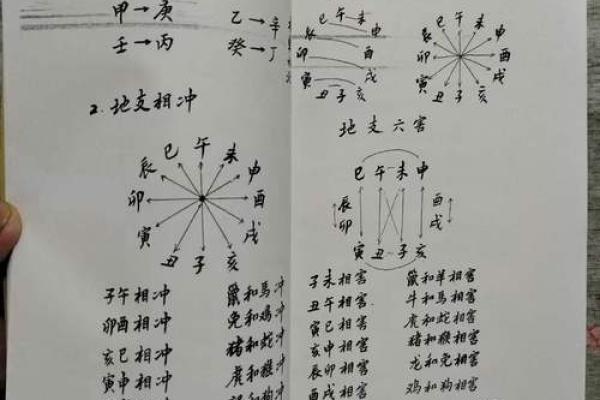 甲→庚
壬→丙
乙→辛
癸→丁
2. 地支相冲
巳 午 未
辰 申
卯 酉
寅 戌
丑 子 亥
子午相冲 鼠和马冲
卯酉相冲 兔和鸡冲
亥巳相冲 猪和蛇冲
寅申相冲 虎和猴冲
巳午未
辰 申
卯 酉
寅 戌
丑子亥
巳 午 未
辰 申
卯 酉
寅 戌
丑 子 亥
地支六害
巳 午 未 申
辰 酉
卯 戌
寅 丑 子 亥
子未相害 鼠和羊相害
丑午相害 牛和马相害
寅巳相害 虎和蛇相害
亥申相害 猪和猴相害
辰卯相害 龙和兔相害
酉戌相害 鸡和狗相害